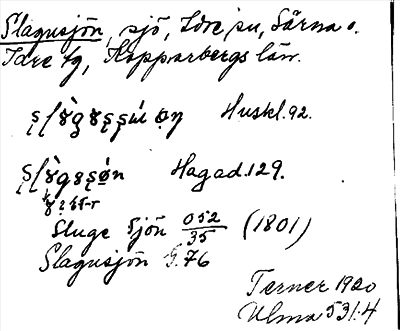 Slagusjön, sjö, Idre sn, Särna o.
Idre tg, Kopparbergs län.
Huskl. 92.
Hagad. 129.
Sluge Sjön 052/35 (1801)
Slagusjön G.76
Terner 1920
Ulma 531:4